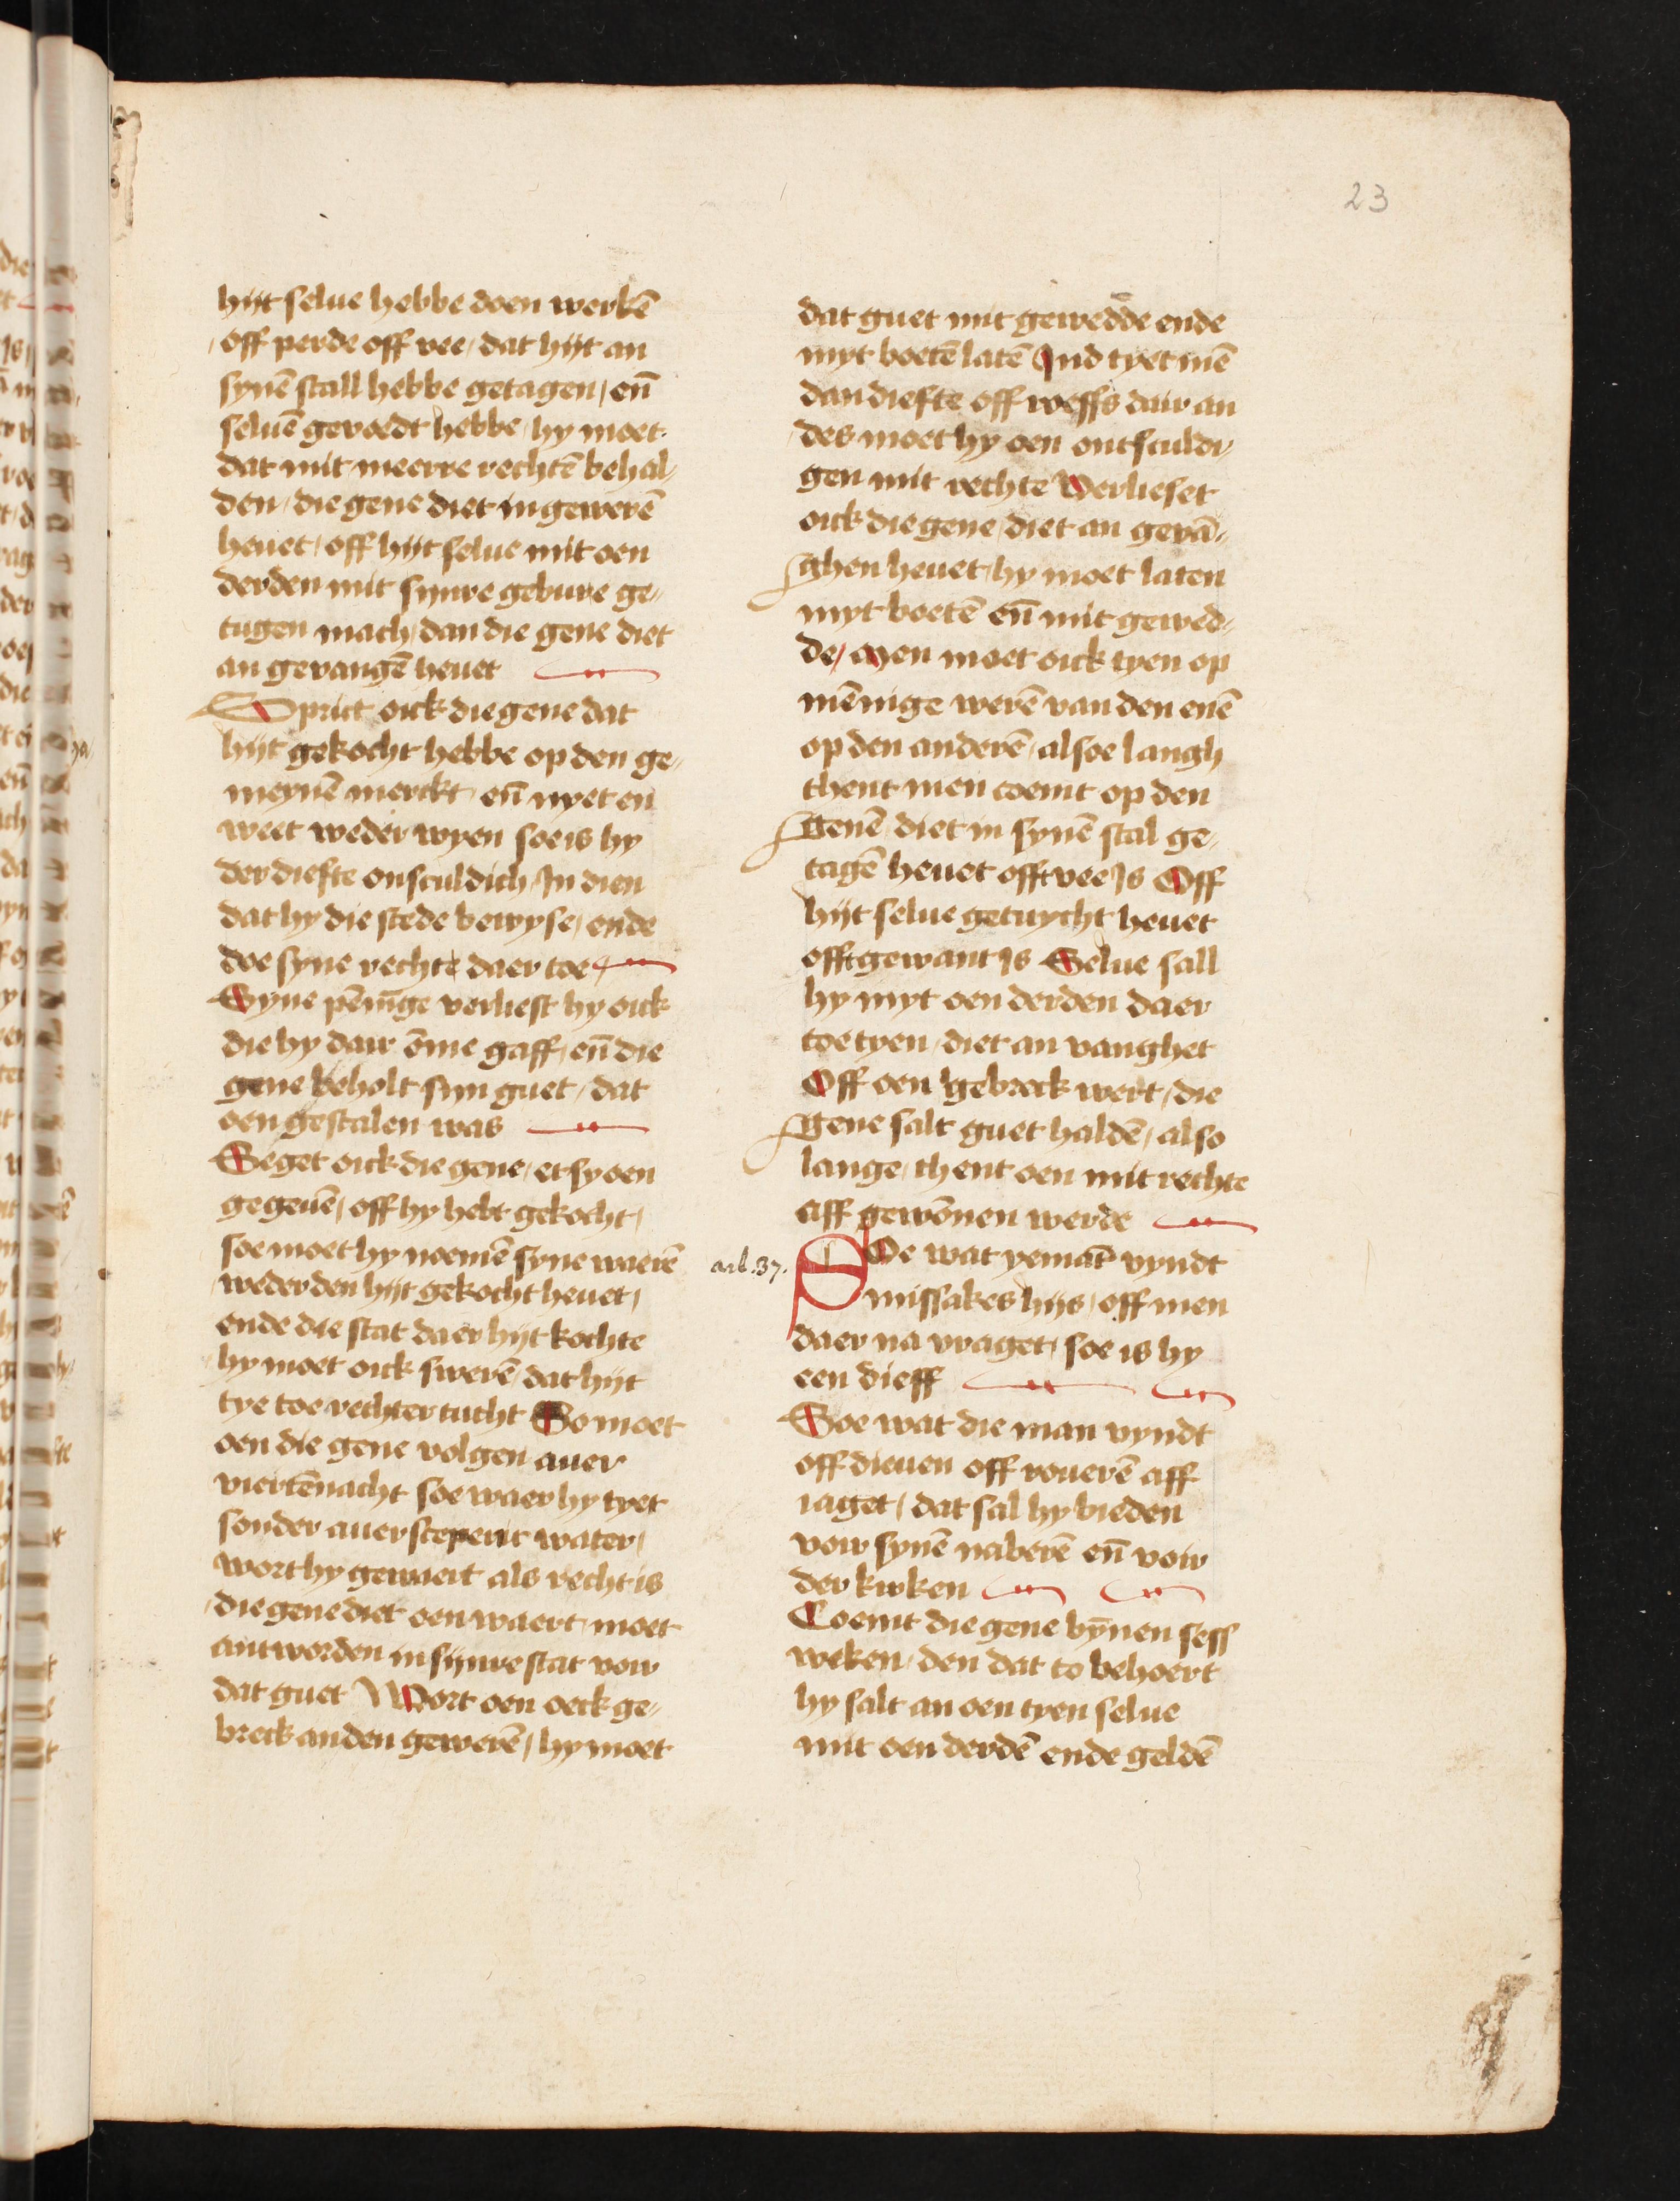 23
hijt selue hebbe doen werkē
off perde off vee / dat hijt an
synē stall hebbe getagen / eñ
seluē gevoedt hebbe / hy moet
dat mit meerre rechtē behal⸗
den / die gene diet in gewerē
heuet / off hijt selue mit oen
derden mit synre gebure ge⸗
tugen mach / dan die gene diet
an gevangē heuet
Sprict oick die gene dat
hijt gekocht hebbe op den ge⸗
meynē merckt / eñ nyet en
weet weder wyen soe is hy
der diefte onsculdich / In dien
dat hy die stede bewyse / ende
doe syne rechte daer toe /
Syne pēnīge verliest hy oick
die hy dair ōme gaff / eñ die
gene beholt syn guet / dat
oen gestalen was
Seget oick die gene / et sy oen
gegeuē / off hy hebt gekocht /
soe moet hy noemē syne waerē
weder den hijt gekocht heuet /
ende die stat daer hijt kochte
hy moet oick swerē / dat hijt
tye toe rechter tucht So moet
oen die gene volgen auer
viertēnacht soe waer hy tyet
sonder auer scepenr water /
wort hy gewaert als recht is
die gene diet oen waert / moet
antworden in sijnre stat voir
dat guet Wort oen oeck ge⸗
breck an den gewerē / hy moet
dat guet mit gewedde ende
myt boetē latē Ind tyet mē
dan diefte off roeffs dair an
des moet hy oen ontsculdi⸗
gen mit rechte Verlieset
oick die gene / diet an gevā⸗
ghen heuet / hy moet laten
myt boetē eñ mit gewed⸗
de / Men moet oick tyen op
mēnige werē van den enē
op den anderē / alsoe langh
thent men coemt op den
genē diet in synē stal ge⸗
tagē heuet offt vee Is Off
hijt selue getuycht heuet
offt gewant Is Selue sall
hy myt oen derden daer
toe tyen / diet an vanghet
Off oen gebreck wert / die
gene salt guet haldē / also
lange / thent oen mit rechte
aff gewōnen werde
art. 37.
SOe wat yemāt vyndt
missakes hijs / off men
daer na vraget / soe is hy
een dieff
Soe wat die man vyndt
off dieuen off rouerē aff
iaget / dat sal hy bieden
voir synē naberē eñ voir
der kirken
Coemt die gene bȳnen sess
weken / den dat to behoert
hy salt an oen tyen selue
mit oen derdē ende geldē